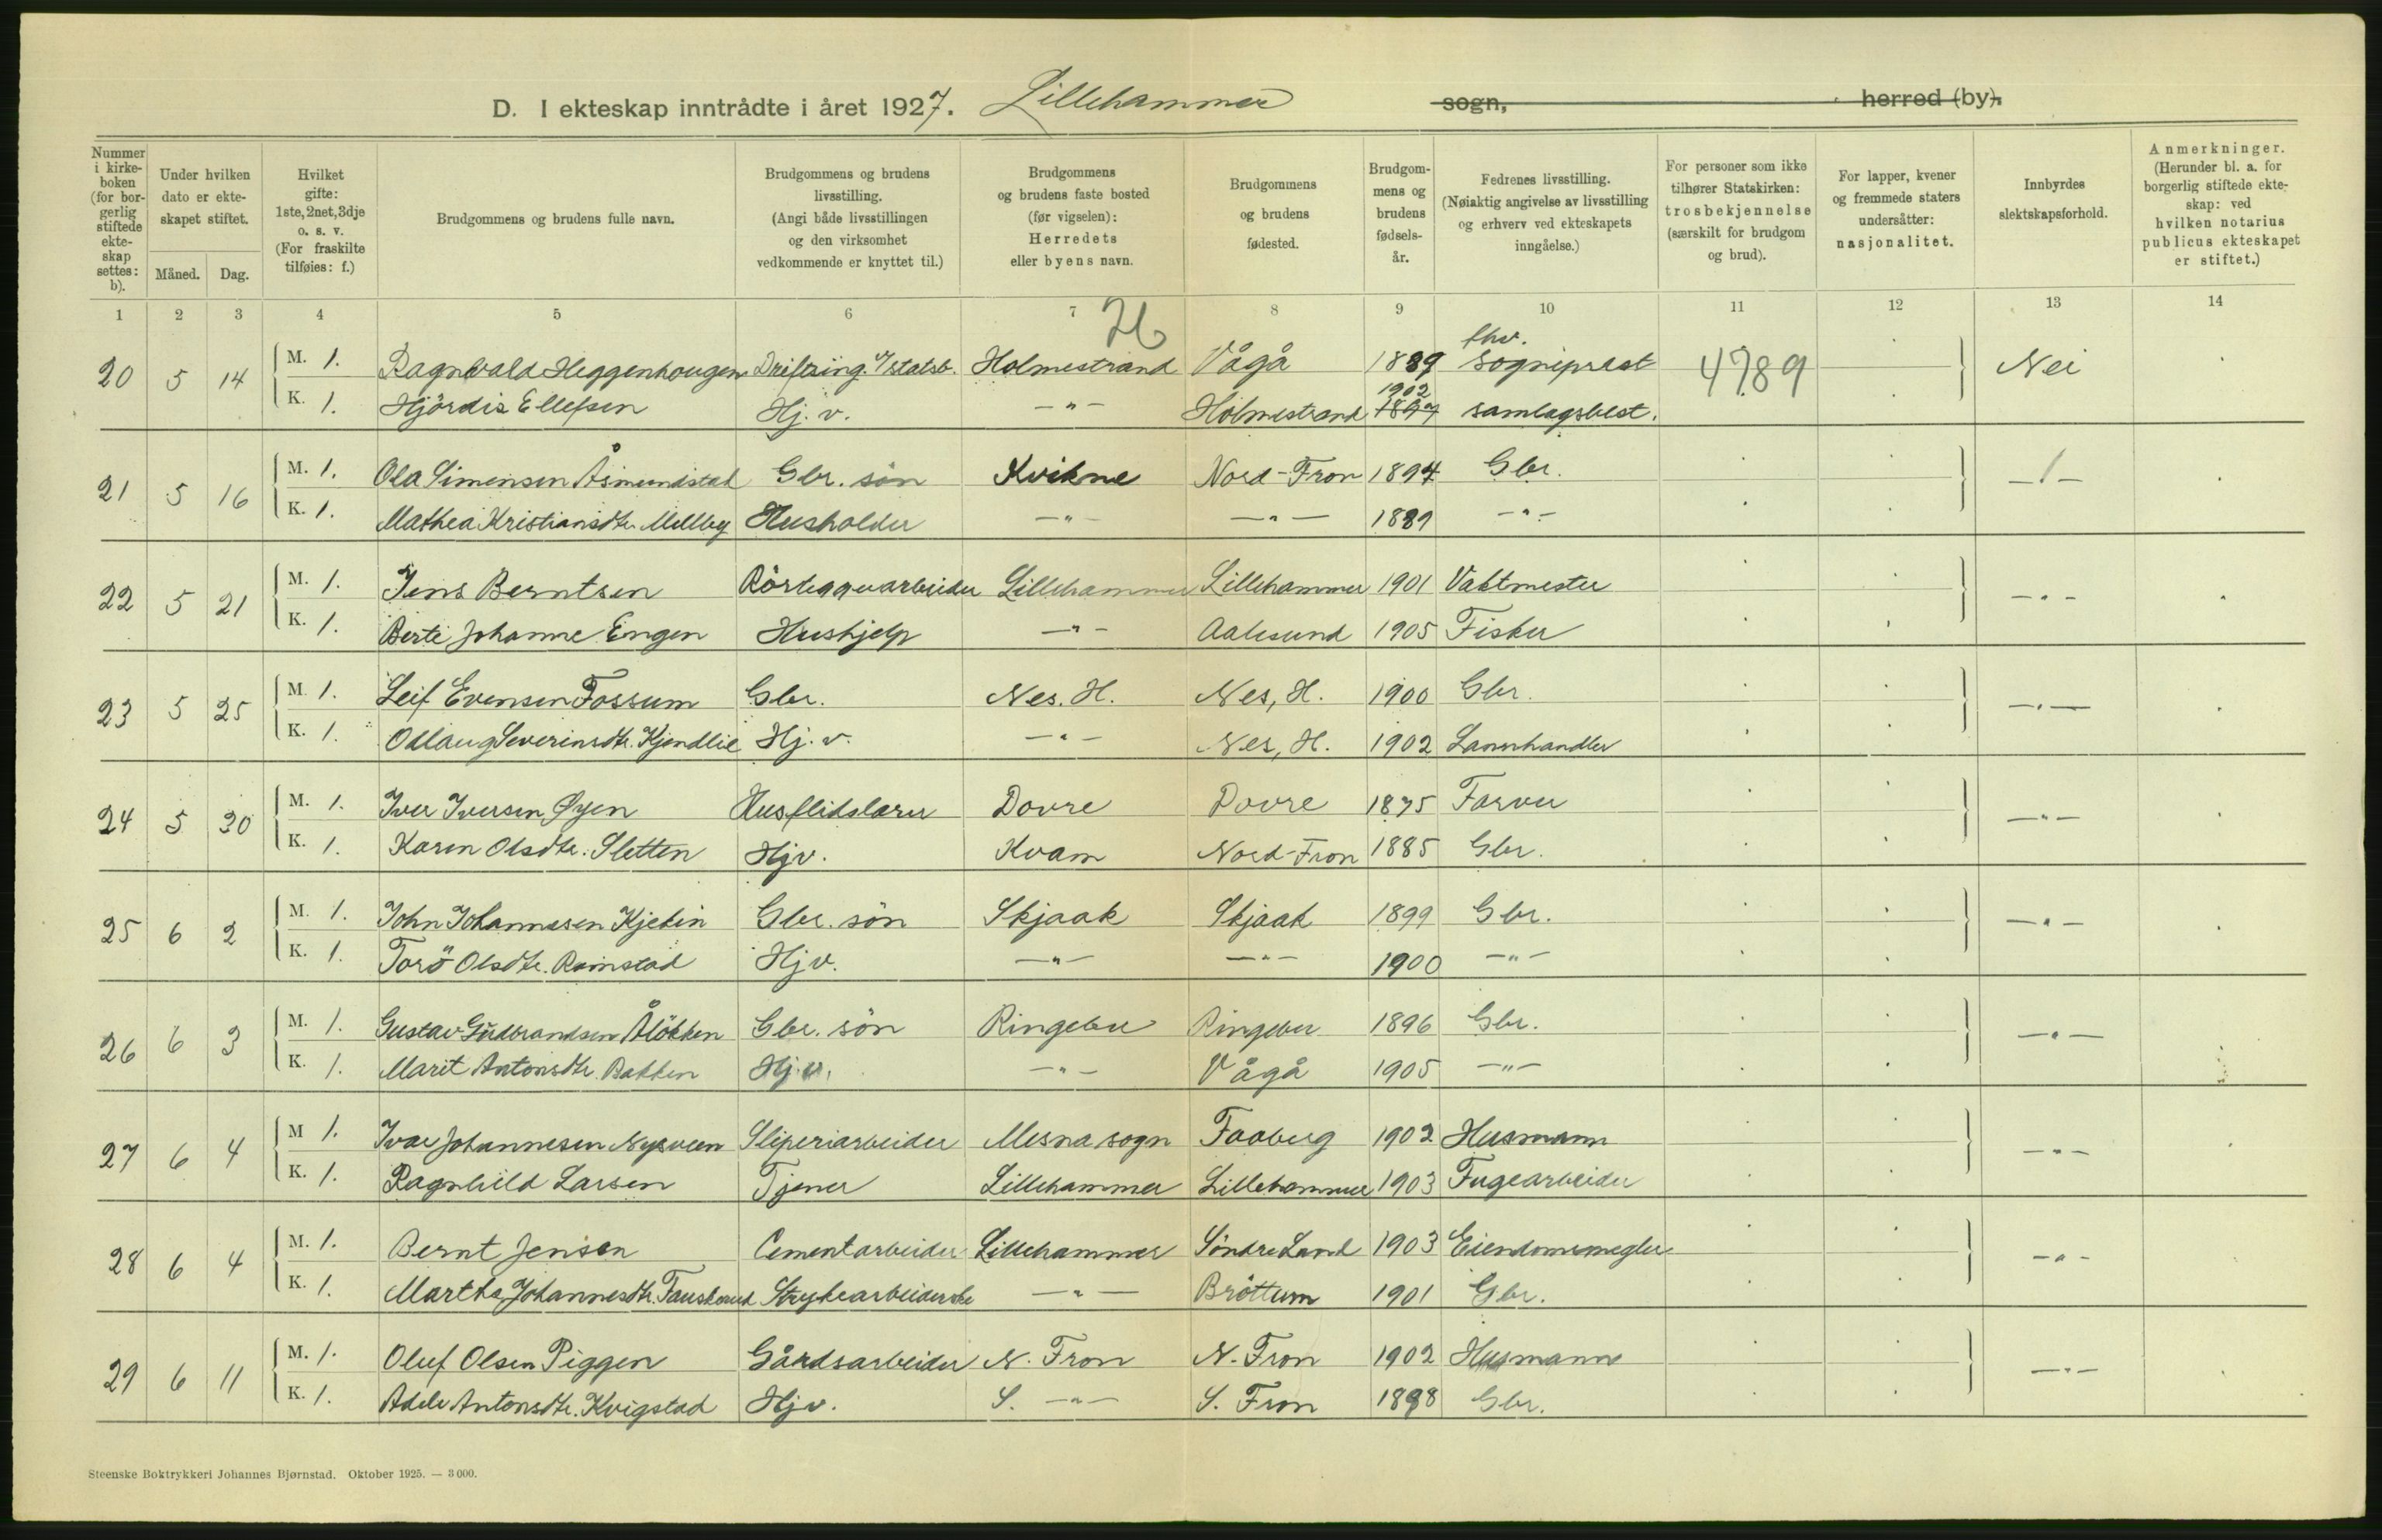 D. I ekteskap inntrådte i året 1927. Lillehammer sogn, herred (by).
Nummer i kirkeboken (for borgerlig stiftede ekteskap settes: b).
Under hvilken dato er ekteskapet stiftet.
Måned. Dag.
Hvilket gifte: 1ste, 2net, 3dje o. s. v. (For fraskilte tilføies: f.)
Brudgommens og brudens fulle navn.
Brudgommens og brudens livsstilling. (Angi både livsstillingen og den virksomhet vedkommende er knyttet til.)
Brudgommens og brudens faste bosted (før vigselen): Herredets eller byens navn.
Brudgommens og brudens fødested.
Brudgommens og brudens fødselsår.
Fedrenes livsstilling. (Nøiaktig angivelse av livsstilling og erhverv ved ekteskapets inngåelse.)
For personer som ikke tilhører Statskirken: trosbekjennelse (særskilt for brudgom og brud).
For lapper, kvener og fremmede staters undersåtter: nasjonalitet.
Innbyrdes slektskapsforhold.
Anmerkninger. (Herunder bl. a. for borgerlig stiftede ekteskap: ved hvilken notarius publicus ekteskapet er stiftet.)
1 2 3 4 5 6 7 8 9 10 11 12 13 14
20 5 14 M. 1. Ragnvald Heggenhougen Driftsing. v/statsb. Holmestrand Vågå 1889 fhv. sogneprest 4789 Nei
K. 1. Hjördis Ellefsen Hj. v. —"— Holmestrand 1902 samlagsbest.
21 5 16 M. 1. Ola Simensen Åsmundstad Gbr. sön Kvikne Nord-Fron 1894 Gbr. —"—
K. 1. Mathea Kristiansdtr. Millby Husholder —"— —"— 1889 —"—
22 5 21 M. 1. Jens Berntsen Rörleggerarbeider Lillehammer Lillehammer 1901 Vaktmester —"—
K. 1. Berte Johanne Engen Hushjelp —"— Aalesund 1905 Fisker
23 5 25 M. 1. Leif Evensen Fossum Gbr. Nes. H. Nes, H. 1900 Gbr. —"—
K. 1. Odlaug Severinsdtr. Kjendlie Hj. v. —"— Nes, H. 1902 Lannhandler
24 5 30 M. 1. Iver Iversen Øyen Husflidslærer Dovre Dovre 1875 Farver —"—
K. 1. Karen Olsdtr. Sletten Hjv. Kvam Nord-Fron 1885 Gbr.
25 6 2 M. 1. John Johannesen Kjekin Gbr. sön Skjaak Skjaak 1899 Gbr. —"—
K. 1. Torö Olsdtr. Ramstad Hjv. —"— —"— 1900 —"—
26 6 3 M. 1. Gustav Gudbrandsen Ålökken Gbr. sön Ringebu Ringebu 1896 Gbr. —"—
K. 1. Marit Antonsdtr. Bakken Hj.v. —"— Vågå 1905 —"—
27 6 4 M 1. Ivar Johannesen Nysveen Sliperiarbeider Mesna sogn Faaberg 1902 Husmann —"—
K. 1. Ragnhild Larsen Tjener Lillehammer Lillehammer 1903 Fugearbeider
28 6 4 M. 1. Bernt Jensen Cementarbeider Lillehammer Söndre Land 1903 Eiendomsmegler —"—
K. 1. Martha Johannesdtr. Fauskerud Strykearbeiderske —"— Bröttum 1901 Gbr.
29 6 11 M. 1. Oluf Olsen Piggen Gårdsarbeider N. Fron N. Fron 1902 Husmann —"—
K. 1. Adele Antonsdtr. Kvigstad Hjv. S. —"— S. Fron 1898 Gbr.
Steenske Boktrykkeri Johannes Bjørnstad. Oktober 1925. — 3 000.